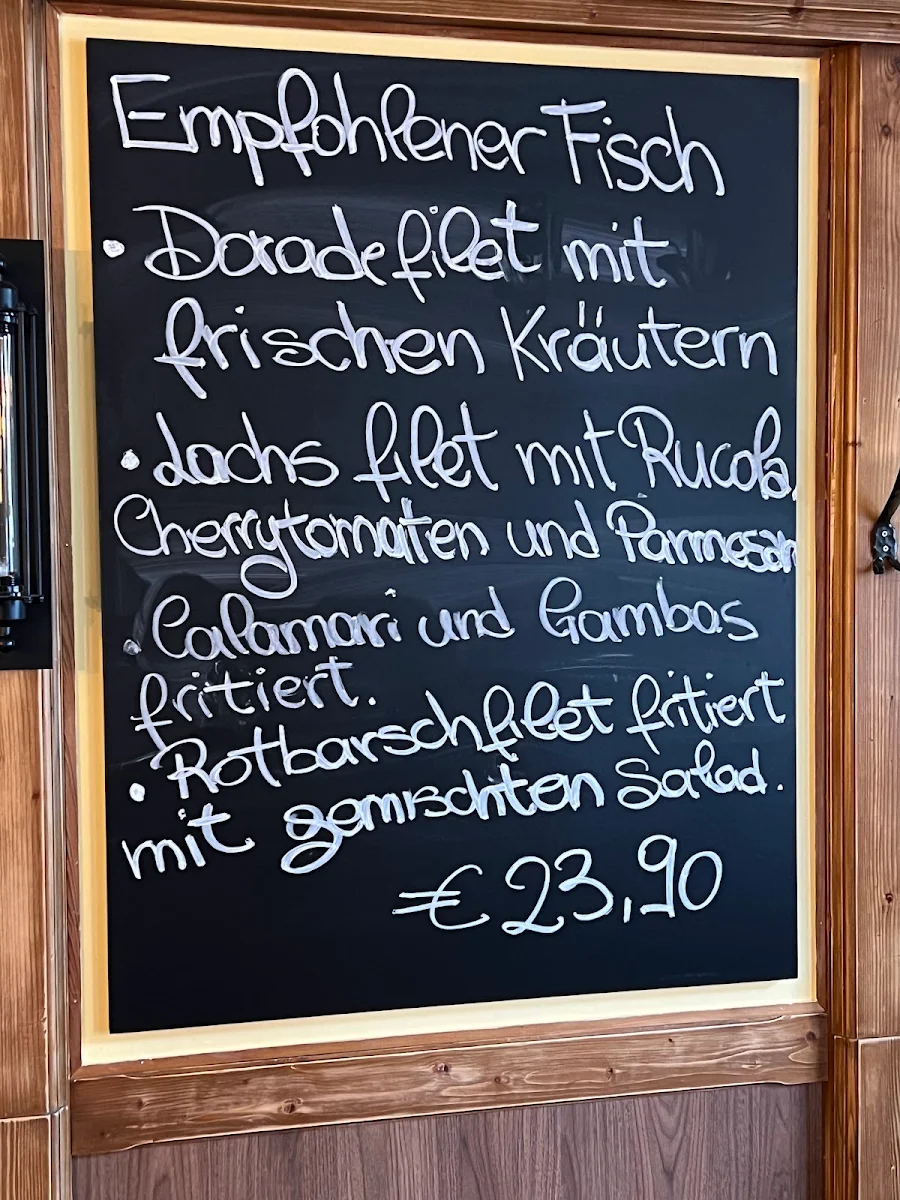 Empfohlener Fisch
• Doradefilet mit
frischen Kräutern
• Lachs filet mit Rucola,
Cherrytomaten und Parmesan
• Calamari und Gambas
fritiert.
• Rotbarschfilet fritiert
mit gemischten Salad.
€ 23,90